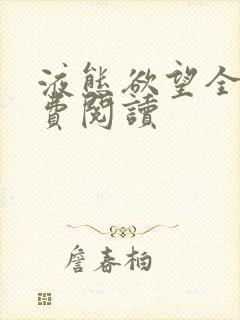 液態欲望全
費閱讀
詹春柏